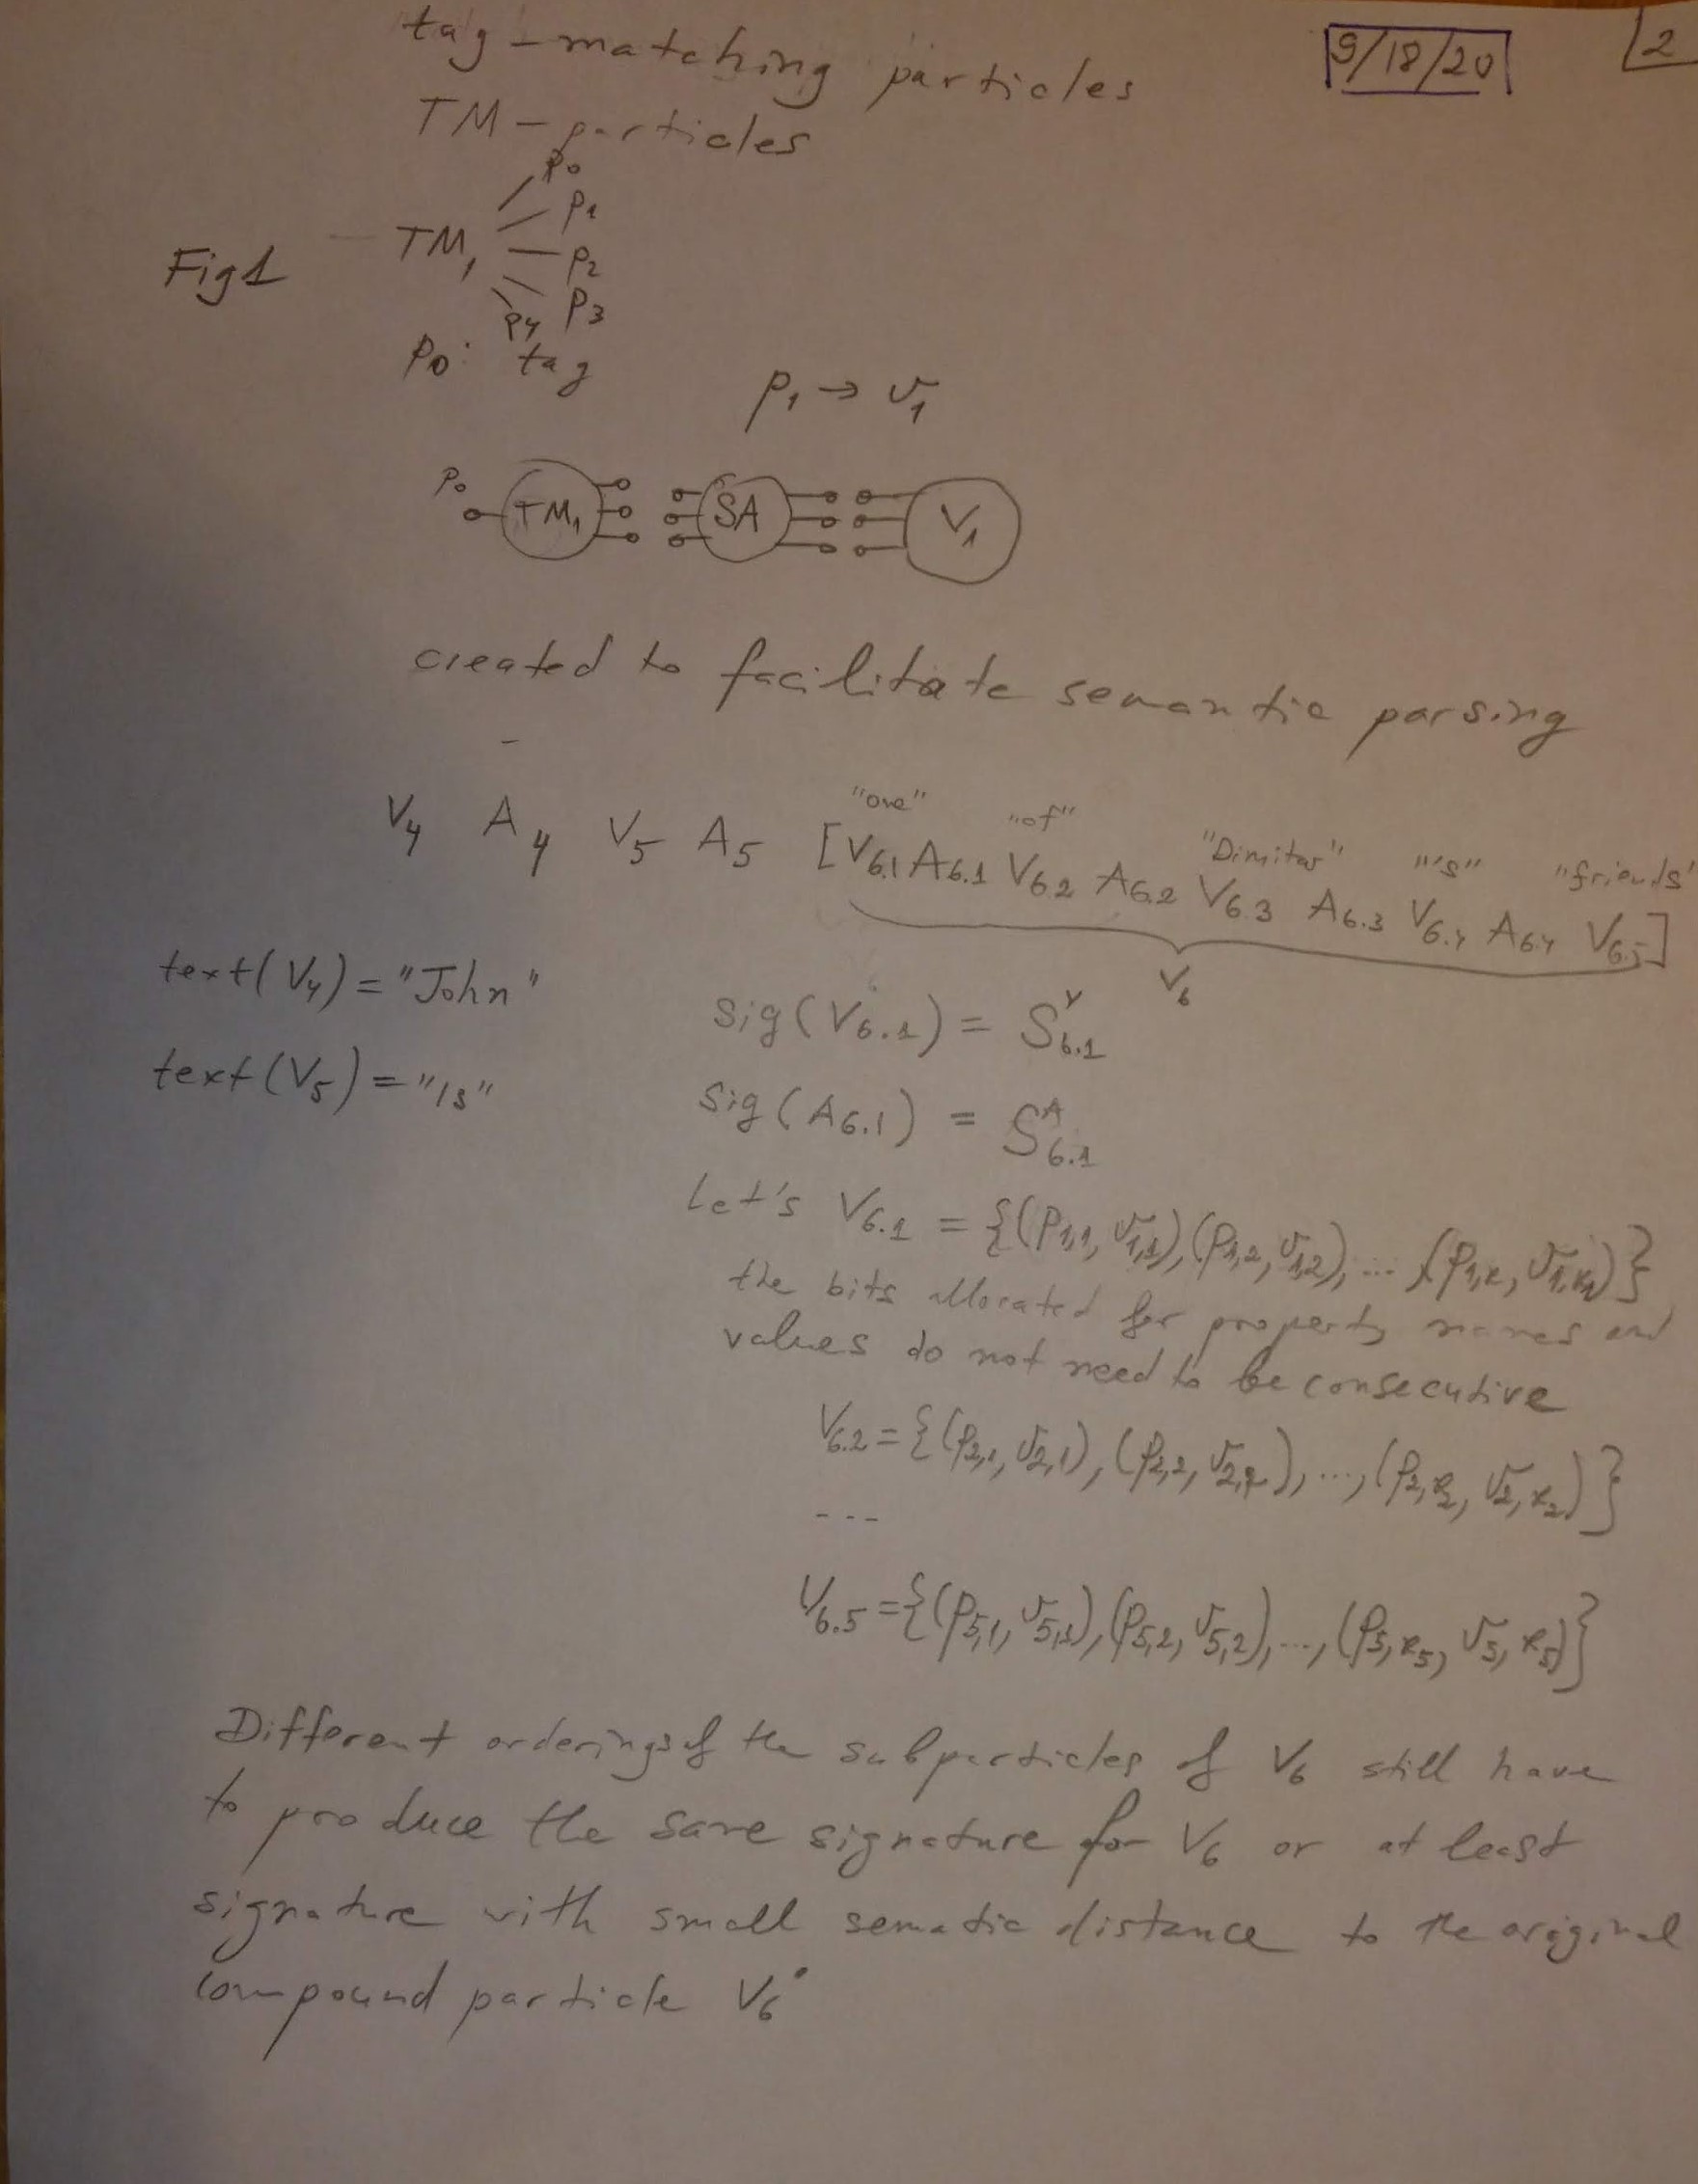 tag-matching particles
9/18/20
2
TM-particles
p0
p1
Fig1 TM1 p2
p3
p4
p0: tag
p1 → v1
p0 TM1 SA V1
created to facilitate semantic parsing
"one" "of" "Dimitar" "'s" "friends"
V4 A4 V5 A5 [V6.1 A6.1 V6.2 A6.2 V6.3 A6.3 V6.4 A6.4 V6.5]
V6
text(V4) = "John"
sig(V6.1) = S^V_6.1
text(V5) = "is"
sig(A6.1) = S^A_6.1
Let's V6.1 = {(p1,1, v1,1), (p1,2, v1,2), ... (p1,k1, v1,k1)}
the bits allocated for property names and
values do not need to be consecutive
V6.2 = {(p2,1, v2,1), (p2,2, v2,2), ..., (p2,k2, v2,k2)}
---
V6.5 = {(p5,1, v5,1), (p5,2, v5,2), ..., (p5,k5, v5,k5)}
Different orderings of the subparticles of V6 still have
to produce the same signature for V6 or at least
signature with small sematic distance to the original
compound particle V6